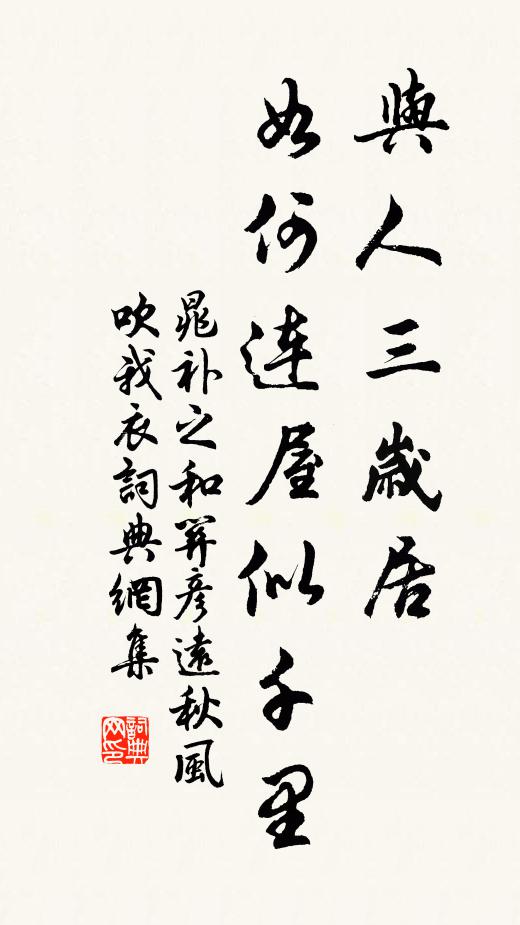 與人三歲居
如何連屋似千里
晁補之和關彥遠秋風
吹我衣詞典網集
詞典網印